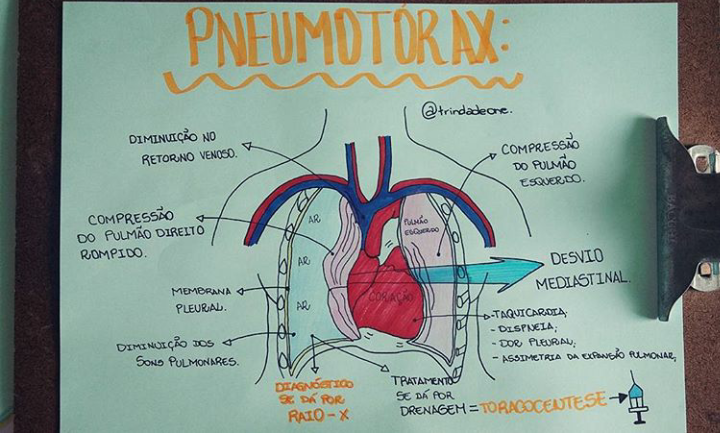 PNEUMOTÓRAX:
@trindadeone.
DIMINUIÇÃO NO
RETORNO VENOSO.
COMPRESSÃO
DO PULMÃO
ESQUERDO.
COMPRESSÃO
DO PULMÃO DIREITO
ROMPIDO.
AR
PULMÃO
ESQUERDO
AR
DESVIO
MEDIASTINAL.
MEMBRANA
PLEURAL.
AR
CORAÇÃO
-TAQUICARDIA;
- DISPNEIA;
- DOR PLEURAL;
- ASSIMETRIA DA EXPANSÃO PULMONAR;
DIMINUIÇÃO DOS
SONS PULMONARES.
DIAGNÓSTICO
SE DÁ POR
RAIO-X
TRATAMENTO
SE DÁ POR
DRENAGEM = TORACOCENTESE